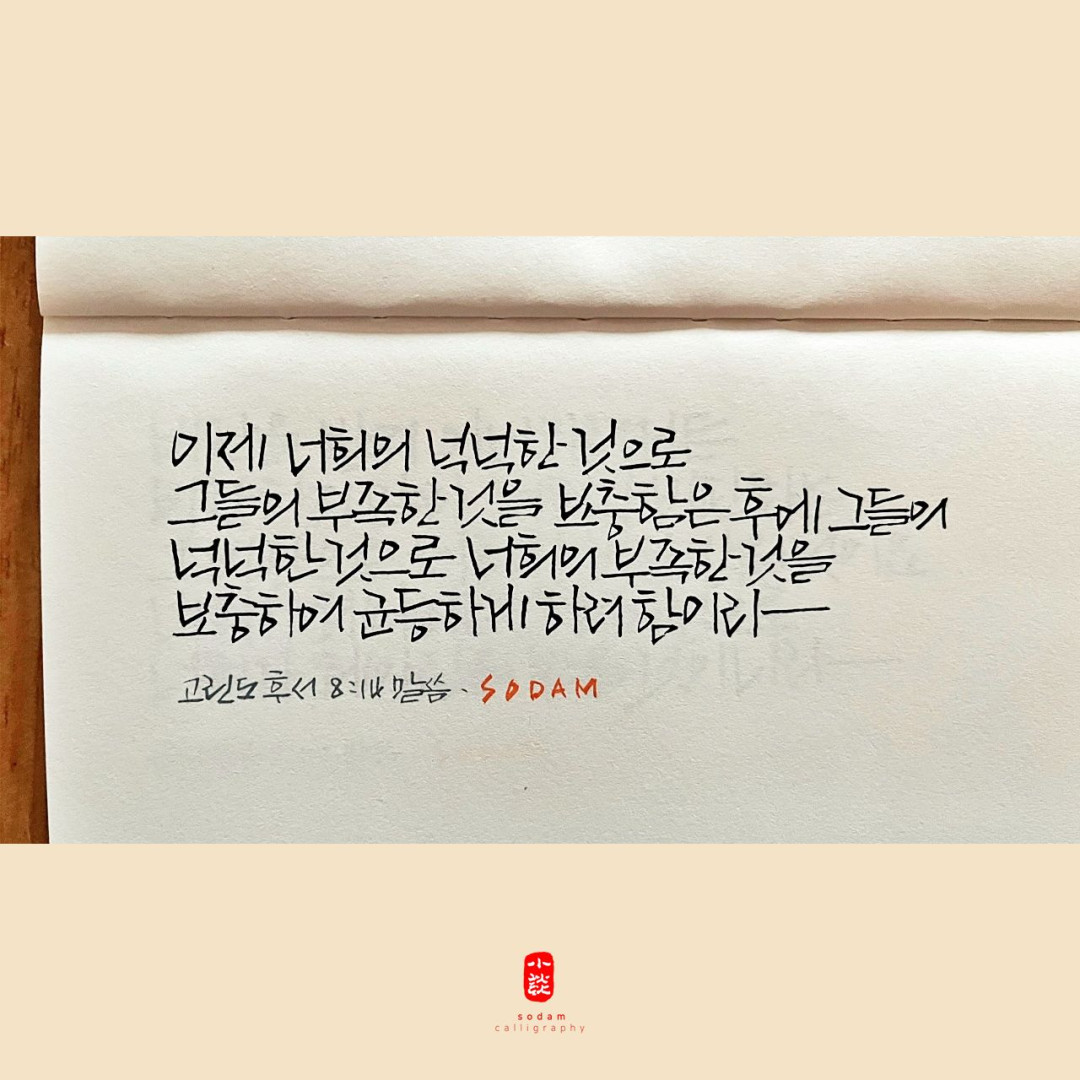 이제 너희의 넉넉한 것으로
그들의 부족한 것을 보충함은 후에 그들의
넉넉한 것으로 너희의 부족한 것을
보충하여 균등하게 하려 함이라
고린도후서 8:14 말씀. SODAM
小談
sodam
calligraphy